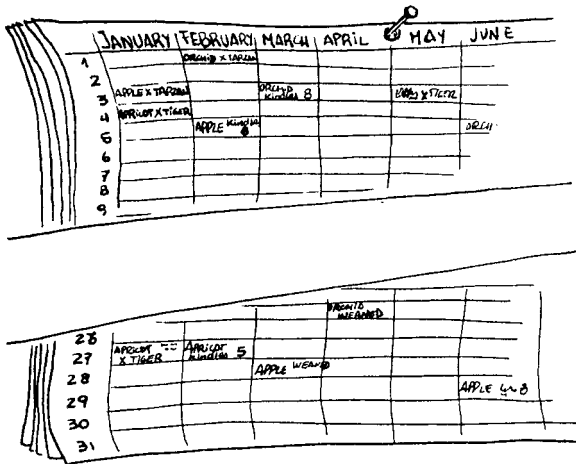 JANUARY FEBRUARY MARCH APRIL MAY JUNE
1 ORCHID X TARZAN
2
3 APPLE X TARZAN ORCHID Kindles 8 X TIGER
4 APRICOT X TIGER
5 APPLE Kindles 8 ORCH
6
7
8
9
ORCHID WEANED
26
27 APRICOT X TIGER APRICOT Kindles 5
28 APPLE WEANED
29 APPLE 8
30
31